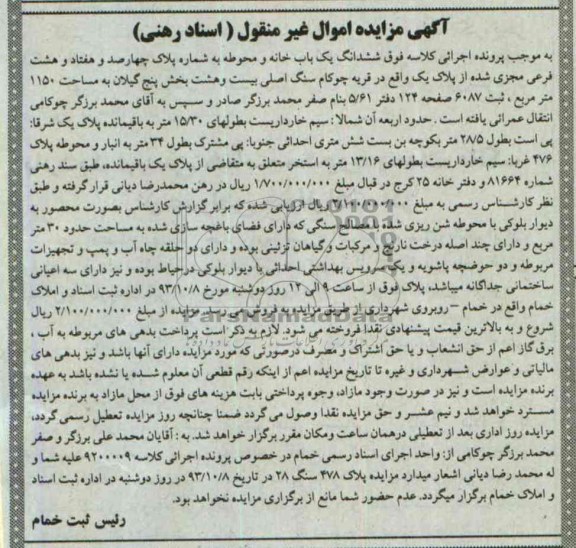 آگهی مزایده اموال غیر منقول ( اسناد رهنی)
به موجب پرونده اجرائی کلاسه فوق ششدانگ یک باب خانه و محوطه به شماره پلاک چهارصد و هفتاد و هشت
فرعی مجزی شده از پلاک یک واقع در قریه چوکام سنگ اصلی بیست وهشت بخش پنج گیلان به مساحت ۱۱۵۰
متر مربع ، ثبت ۶۰۸۷ صفحه ۱۲۴ دفتر ۵/۶۱ بنام صفر محمد برزگر صادر و سپس به آقای محمد برزگر چوکامی
انتقال عمرانی یافته است . حدود اربعه آن شمالا : سیم خارداریست بطولهای ۱۵/۳۰ متر به باقیمانده پلاک یک شرقا:
پی است بطول ۲۸/۵ متر بکوچه بن بست شش متری احداثی جنوبا: پی مشترک بطول ۳۴ متر به انبار و محوطه پلاک
۴۷۶ غربا: سیم خارداریست بطولهای ۱۳/۱۶ متر به استخر متعلق به متقاضی از پلاک یک باقیمانده، طبق سند رهنی
شماره ۸۱۶۶۴ و دفتر خانه ۲۵ کرج در قبال مبلغ ۱/۷۰۰/۰۰۰/۰۰۰ ریال در رهن محمدرضا دیانی قرار گرفته و طبق
نظر کارشناس رسمی به مبلغ ۲/۱۰۰/۰۰۰/۰۰۰ ریال ارزیابی شده که برابر گزارش کارشناس بصورت محصور به
دیوار بلوکی با محوطه شن ریزی شده با مصالح سنگی که دارای فضای باغچه سازی شده به مساحت حدود ۳۰ متر
مربع و دارای چند اصله درخت نارنج و مرکبات وگیاهان تزئینی بوده و دارای دو حلقه چاه آب و پمپ و تجهیزات
مربوطه و دو حوضچه پاشویه و یک سرویس بهداشتی احداثی با دیوار بلوکی درحیاط بوده و نیز دارای سه اعیانی
ساختمانی جداگانه میباشد، پلاک فوق از ساعت ۹ الی ۱۲ روز دوشنبه مورخ ۹۳/۱۰/۸ در اداره ثبت اسناد و املاک
خمام واقع در خمام – روبروی شهرداری از طریق مزایده به فروش می رسد. مزایده از مبلغ ۲/۱۰۰/۰۰۰/۰۰۰ ریال
شروع و به بالاترین قیمت پیشنهادی نقدا فروخته می شود. لازم به ذکر است پرداخت بدهی های مربوطه به آب ،
برق گاز اعم از حق انشعاب و یا حق اشتراک و مصرف درصورتی که مورد مزایده دارای آنها باشد و نیز بدهی های
مالیاتی و عوارض شهرداری و غیره تا تاریخ مزایده اعم از اینکه رقم قطعی آن معلوم شده یا نشده باشد به عهده
برنده مزایده است و نیز در صورت وجود مازاد، وجوه پرداختی بابت هزینه های فوق از محل مازاد به برنده مزایده
مسترد خواهد شد و نیم عشر و حق مزایده نقدا وصول می گردد ضمنا چنانچه روز مزایده تعطیل رسمی گردد،
مزایده روز اداری بعد از تعطیلی درهمان ساعت ومکان مقرر برگزار خواهد شد. به : آقایان محمد علی برزگر و صفر
محمد برزگر چوکامی از: واحد اجرای اسناد رسمی خمام در خصوص پرونده اجرائی کلاسه ۹۲۰۰۰۰۹ علیه شما و
له محمد رضا دیانی اشعار میدارد مزایده پلاک ۴۷۸ سنگ ۲۸ در تاریخ ۹۳/۱۰/۸ در روز دوشنبه در اداره ثبت اسناد
و املاک خمام برگزار میگردد. عدم حضور شما مانع از برگزاری مزایده نخواهد بود.
رئیس ثبت خمام